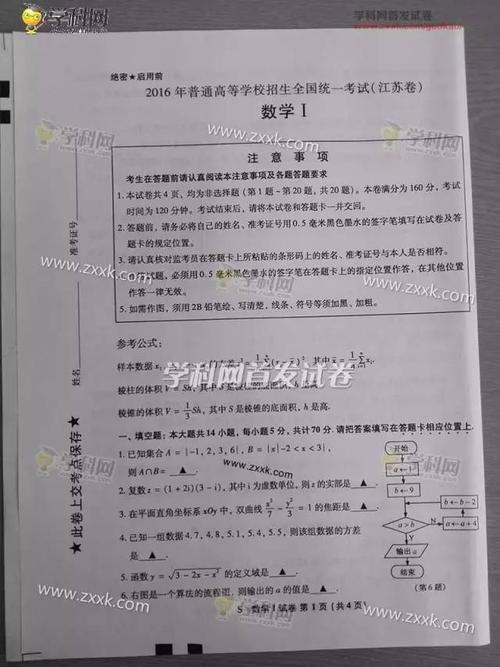 学科网
学科网首发试卷
绝密★启用前
2016 年普通高等学校招生全国统一考试(江苏卷)
数学 I
学科网
www.zxxk.com
注意事项
考生在答题前请认真阅读本注意事项及各题答题要求
1. 本试卷共 4 页，均为非选择题(第 1 题~第 20 题，共 20 题)。本卷满分为 160 分，考试
时间为 120 分钟。考试结束后，请将本试卷和答题卡一并交回。
2. 答题前，请务必将自己的姓名、准考证号用 0.5 毫米黑色墨水的签字笔填写在试卷及答
题卡的规定位置。
3. 请认真核对监考员在答题卡上所粘贴的条形码上的姓名、准考证号与本人是否相符。
试题，必须用 0.5 毫米黑色墨水的签字笔在答题卡上的指定位置作答，在其他位置
作答一律无效。
5. 如需作图，须用 2B 铅笔绘、写清楚，线条、符号等须加黑、加粗。
准考证号
姓名
★此卷上交考点保存★
参考公式：
样本数据 x₁ = 1/n Σ(xᵢ - x̄)²，其中 x̄ = 1/n Σxᵢ.
学科网首发试卷
棱柱的体积 V = Sh，其中 S 是棱柱的底面积，h 是高.
棱锥的体积 V = 1/3 Sh，其中 S 是棱锥的底面积，h 是高.
一、填空题：本大题共 14 小题，每小题 5 分，共计 70 分. 请把答案填写在答题卡相应位置上.
1. 已知集合 A = {-1, 2, 3, 6}，B = {x|-2 < x < 3}，
则 A∩B = ▲ .
2. 复数 z = (1 + 2i)(3 - i)，其中 i 为虚数单位，则 z 的实部是 ▲ .
3. 在平面直角坐标系 xOy 中，双曲线 x²/7 - y²/3 = 1 的焦距是 ▲ .
4. 已知一组数据 4.7, 4.8, 5.1, 5.4, 5.5，则该组数据的方差
是 ▲ .
5. 函数 y = √(3 - 2x - x²) 的定义域是 ▲ .
6. 右图是一个算法的流程图，则输出的 a 的值是 ▲ .
开始
a←1
b←9
a>b
N
b←b-2
a←a+4
Y
输出 a
结束
(第 6 题)
数学 I 试卷 第 1 页(共 4 页)
www.zxxk.com